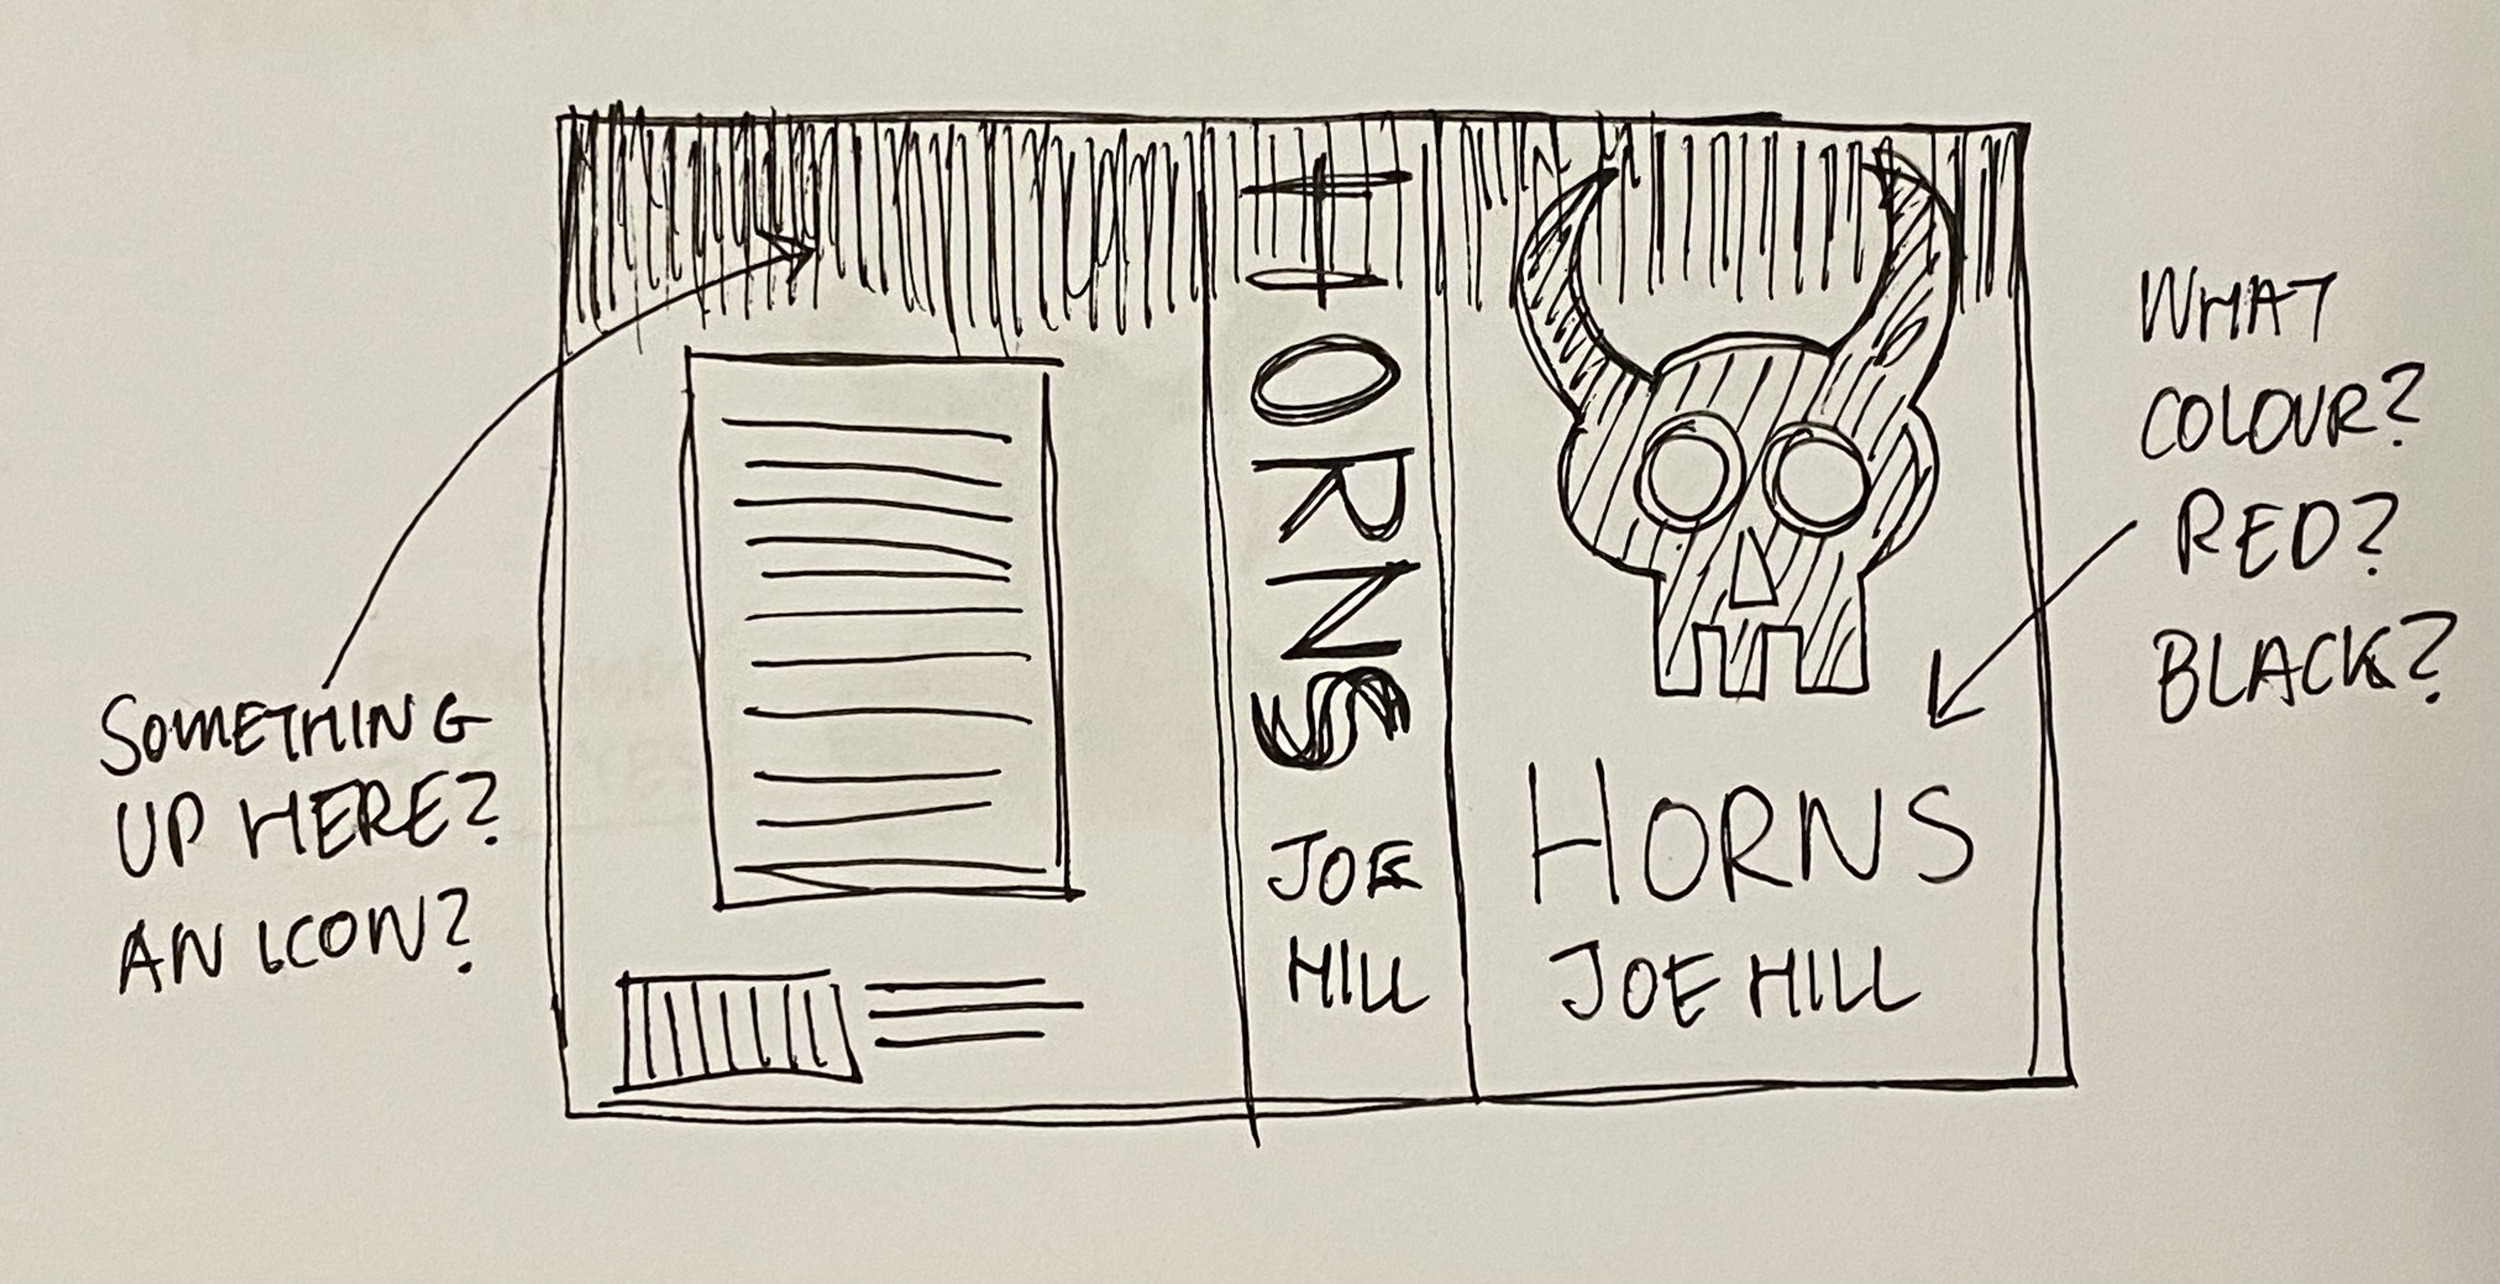 SOMETHING
UP HERE?
AN ICON?
HORNS
JOE
HILL
HORNS
JOE HILL
WHAT
COLOUR?
RED?
BLACK?